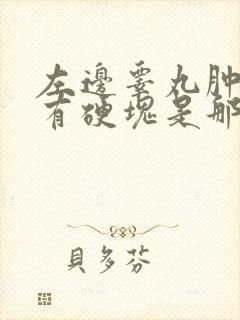 左邊睪丸肿
有硬塊是那
貝多芬